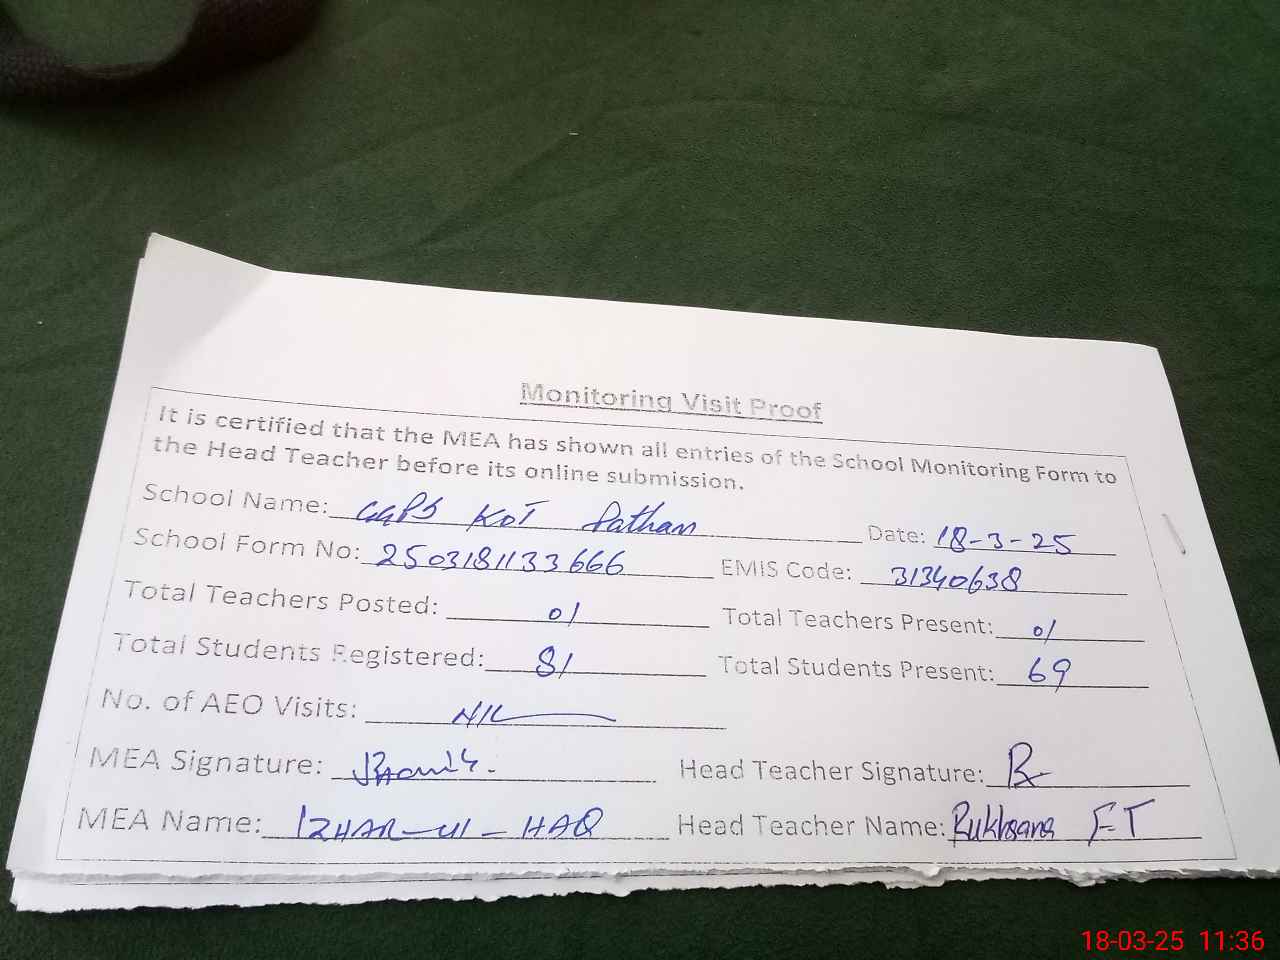 Monitoring Visit Proof
It is certified that the MEA has shown all entries of the School Monitoring Form to
the Head Teacher before its online submission.
School Name: GGPS KOT Pathan Date: 18-3-25
School Form No: 2503181133666 EMIS Code: 31340638
Total Teachers Posted: 01 Total Teachers Present: 01
Total Students Registered: 81 Total Students Present: 69
No. of AEO Visits: NIL
MEA Signature: Head Teacher Signature:
MEA Name: IZHAR-UL-HAQ Head Teacher Name: Rukhsana FT
18-03-25 11:36